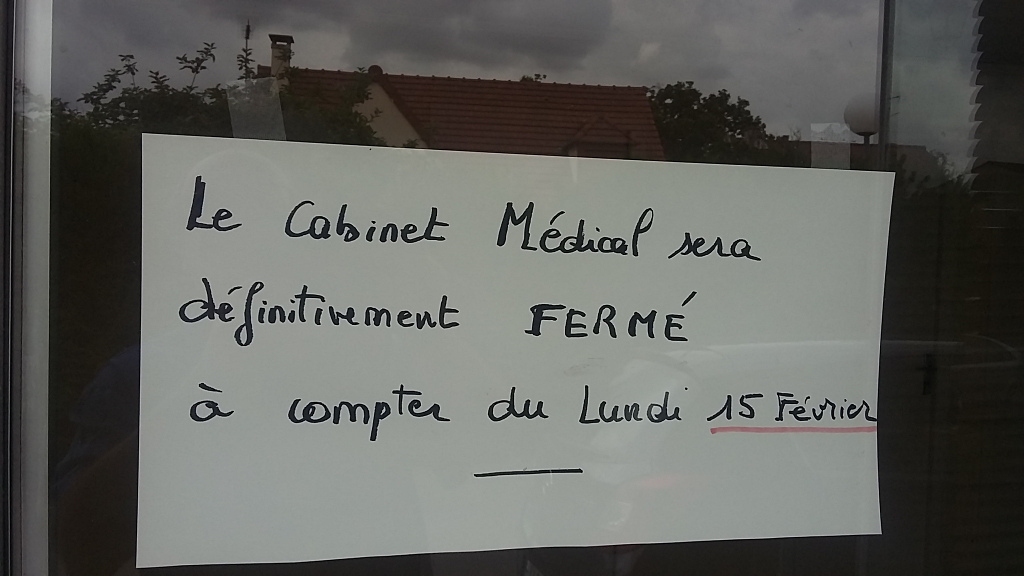 Le Cabinet Médical sera
définitivement FERMÉ
à compter du Lundi 15 Février